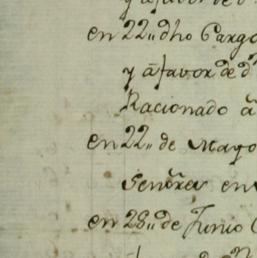 en 22,, dho Cargo
y á favor de dn
Racionado á
en 22,, de Mayo
Señores en
en 28,, de Junio